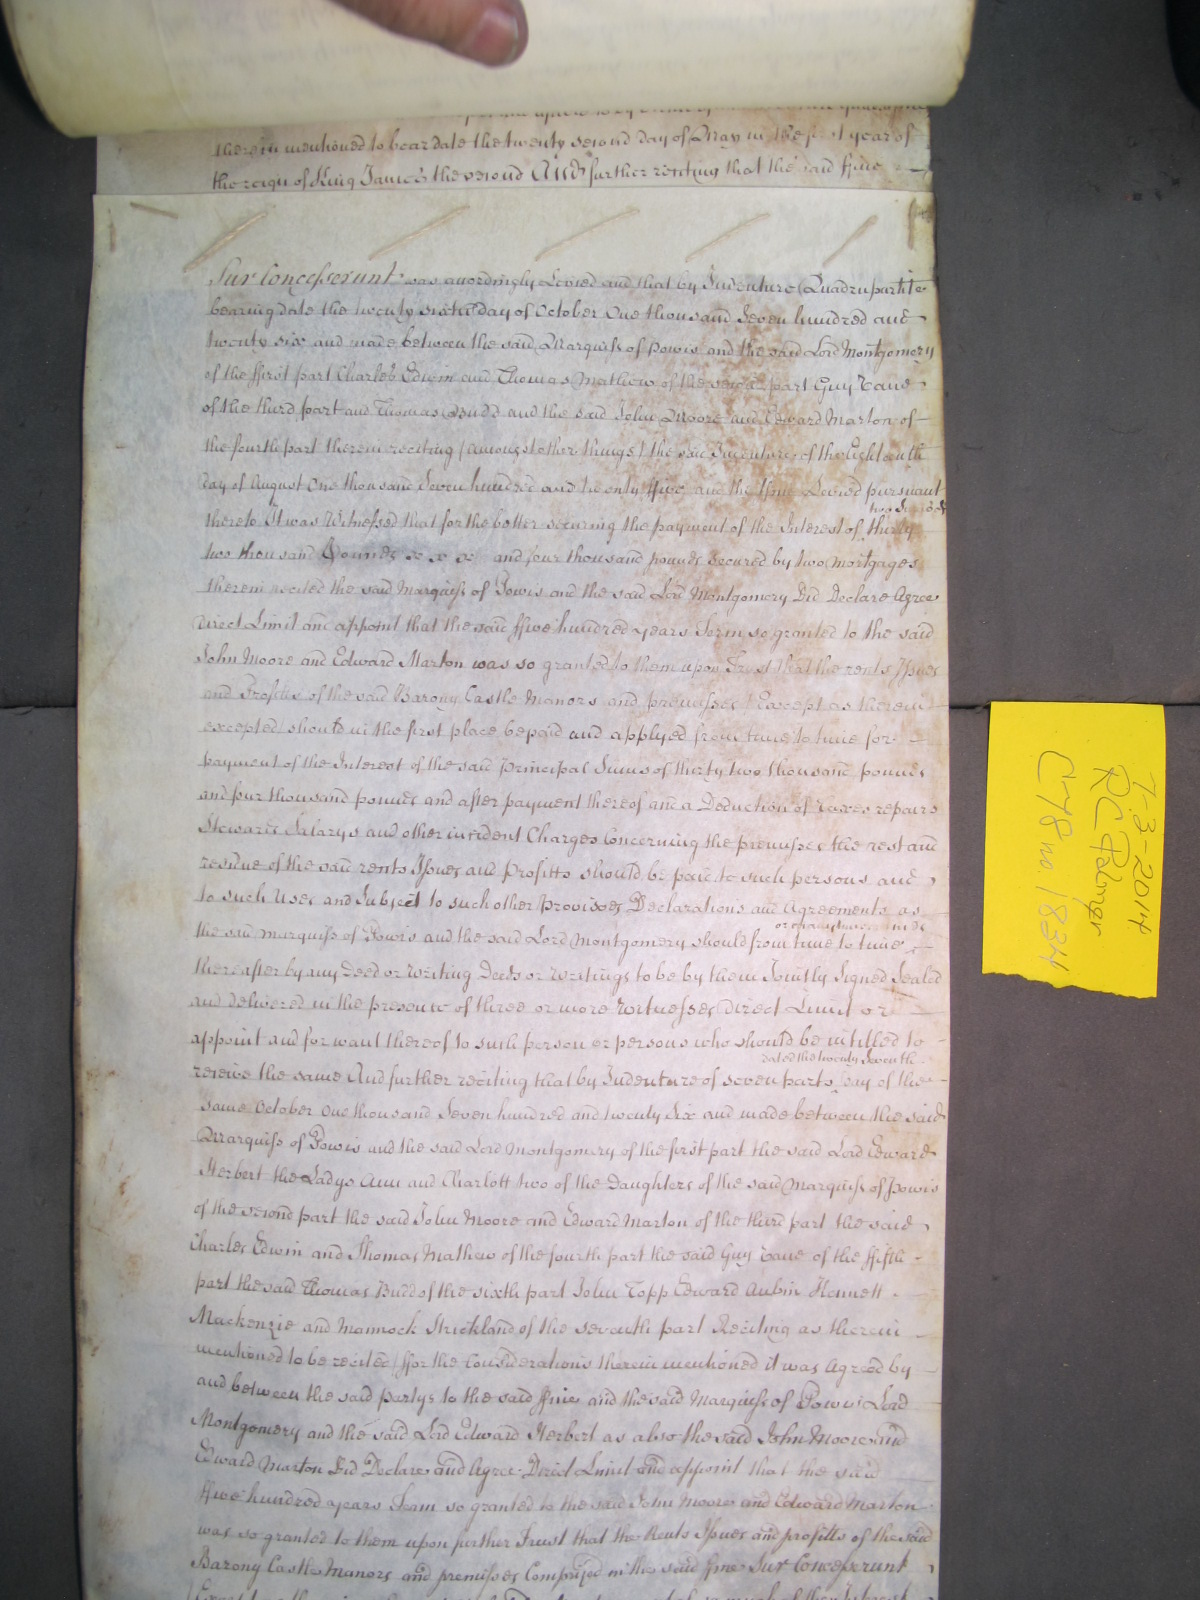 therein mentioned to bear date the twenty second day of May in the first year of
the reign of King James the second And further reciting that the said ffine
Sur Concesserunt was accordingly Levied and that by Indenture Quadrupartite
bearing date the twenty sixth day of October One thousand Seven hundred and
twenty six and made between the said Marquiss of Powis and the said Lord Montgomery
of the ffirst part Charles Edwin and Thomas Mathew of the second part Guy Vane
of the third part and Thomas Budd and the said John Moore and Edward Marton of
the fourth part therein reciting (amongst other things) the said Indenture of the Eighteenth
day of August One thousand Seven hundred and twenty ffive and the ffine Levied pursuant
thereto It was Witnessed that for the better securing the payment of the Interest of thirty
two thousand Pounds x x x and four thousand pounds secured by two mortgages
therein recited the said Marquiss of Powis and the said Lord Montgomery Did Declare Agree
Direct Limit and appoint that the said ffive hundred years Term so granted to the said
John Moore and Edward Marton was so granted to them upon Trust that the rents Issues
and Profitts of the said Barony Castle Manors and premisses (Except as therein
excepted) should in the first place be paid and applyed from time to time for
payment of the Interest of the said Principal Sums of thirty two thousand pounds
and four thousand pounds and after payment thereof and a Deduction of Taxes repairs
Stewards Salarys and other incident Charges Concerning the premisses the rest and
residue of the said rents Issues and Profitts should be paid to such persons and
to such Uses and Subject to such other Provisoes Declarations and Agreements as
the said Marquiss of Powis and the said Lord Montgomery should from time to time
thereafter by any Deed or Writing Deeds or Writings to be by them Jointly Signed Sealed
and delivered in the presence of three or more Witnesses Direct Limit or
appoint and for want thereof to such person or persons who should be intitled to
dated the twenty seventh
receive the same And further reciting that by Indenture of seven parts day of the
same October One thousand Seven hundred and twenty Six and made between the said
Marquiss of Powis and the said Lord Montgomery of the first part the said Lord Edward
Herbert the Ladys Ann and Charlott two of the Daughters of the said Marquiss of Powis
of the second part the said John Moore and Edward Marton of the third part the said
Charles Edwin and Thomas Mathew of the fourth part the said Guy Vane of the ffifth
part the said Thomas Budd of the sixth part John Topp Edward Aubin Kennett
Mackenzie and Mannock Strickland of the seventh part Reciting as therein
mentioned to be recited ffor the Considerations therein mentioned it was Agreed by
and between the said partys to the said ffine and the said Marquiss of Powis Lord
Montgomery and the said Lord Edward Herbert as also the said John Moore and
Edward Marton Did Declare and Agree Direct Limit and appoint that the said
ffive hundred years Term so granted to the said John Moore and Edward Marton
was so granted to them upon further Trust that the Rents Issues and profitts of the said
Barony Castle Manors and premisses Comprized in the said ffine Sur Concesserunt
7-3-2014
R C Palmer
C 78 no 1834